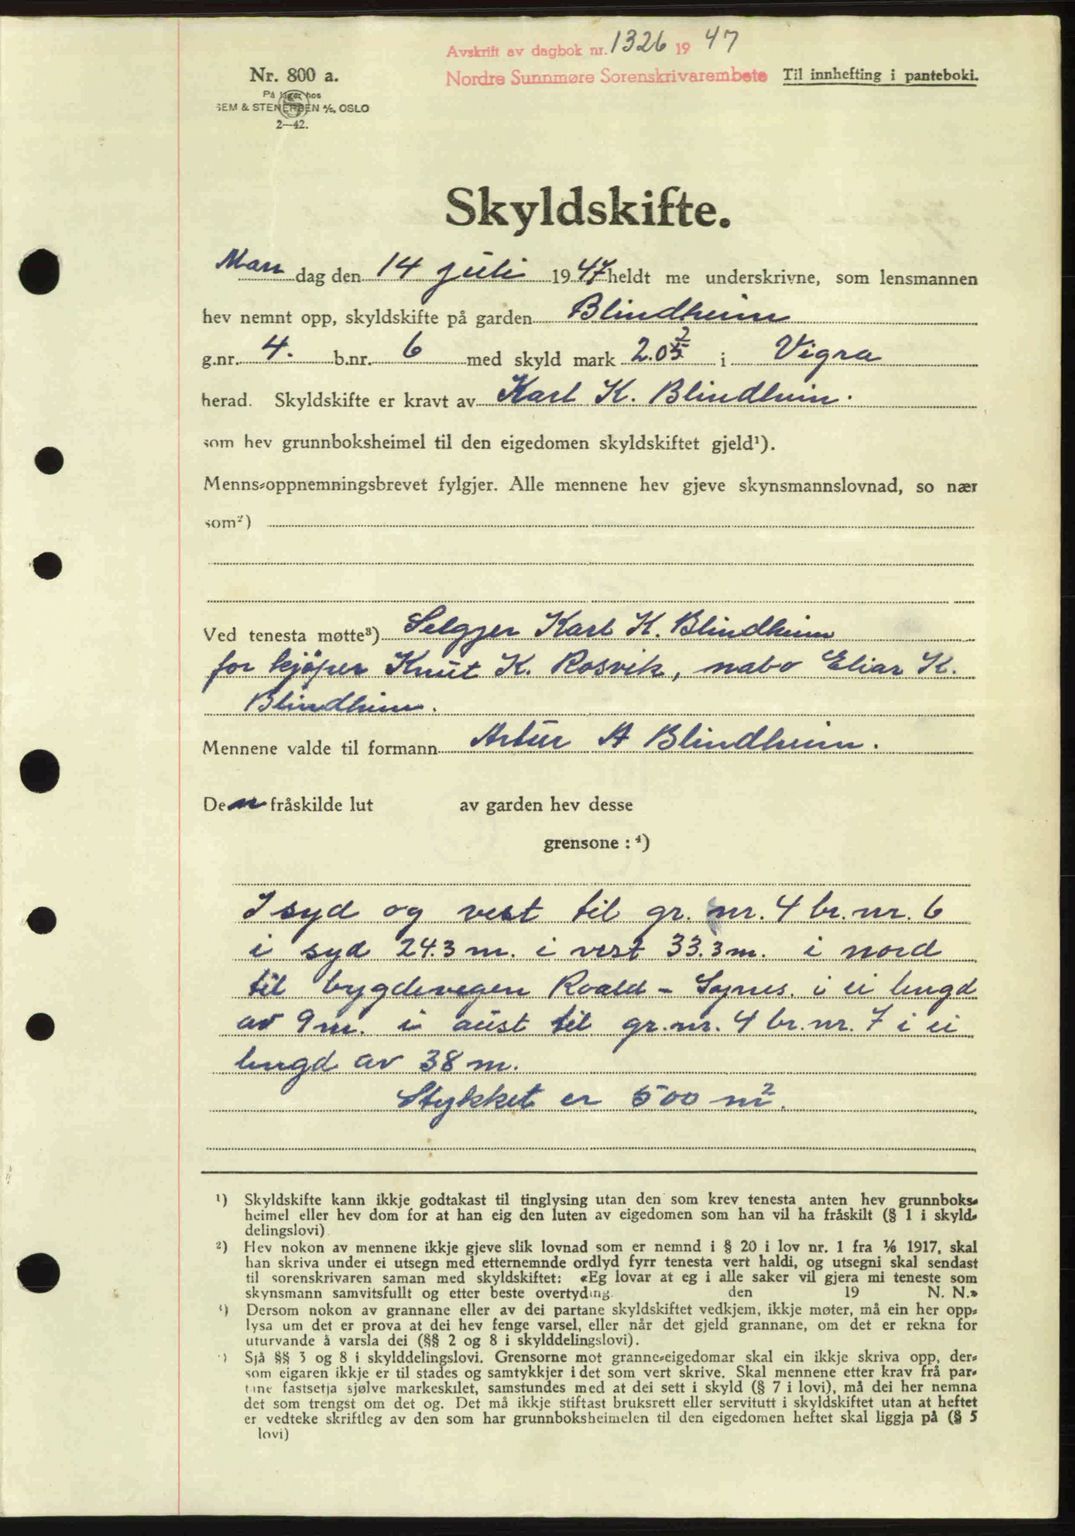 Avskrift av dagbok nr. 1326 19 47
Nordre Sunnmøre Sorenskrivarembete
Til innhefting i panteboki.
Nr. 800 a.
På lager hos
SEM & STENERSEN A/S, OSLO
2—42.
Skyldskifte.
Man dag den 14 juli 1947 heldt me underskrivne, som lensmannen
hev nemnt opp, skyldskifte på garden Blindheim
g.nr. 4. b.nr. 6 med skyld mark 2.05 i Vigra
herad. Skyldskifte er kravt av Karl K. Blindheim.
som hev grunnboksheimel til den eigedomen skyldskiftet gjeld¹).
Menns-oppnemningsbrevet fylgjer. Alle mennene hev gjeve skynsmannslovnad, so nær
som²)
Ved tenesta møtte³) Selgjer Karl K. Blindheim
for kjøper Knut K. Rosvik, nabo Elias K.
Blindheim.
Mennene valde til formann Artur A Blindheim.
Den fråskilde lut av garden hev desse
grensone : ⁴)
I syd og vest til gr. nr. 4 br. nr. 6
i syd 24.3 m. i vest 33.3 m. i nord
til bygdevegen Roald - Synes. i ei lengd
av 9 m. i aust til gr. nr. 4 br. nr. 7 i ei
lengd av 38 m.
Stykket er 500 m².
¹) Skyldskifte kann ikkje godtakast til tinglysing utan den som krev tenesta anten hev grunnboks-
heimel eller hev dom for at han eig den luten av eigedomen som han vil ha fråskilt (§ 1 i skyld-
delingslovi)
²) Hev nokon av mennene ikkje gjeve slik lovnad som er nemnd i § 20 i lov nr. 1 fra ⅙ 1917, skal
han skriva under ei utsegn med etternemnde ordlyd fyrr tenesta vert haldi, og utsegni skal sendast
til sorenskrivaren saman med skyldskiftet: «Eg lovar at eg i alle saker vil gjera mi teneste som
skynsmann samvitsfullt og etter beste overtyding. den 19 N. N.»
³) Dersom nokon av grannane eller av dei partane skyldskiftet vedkjem, ikkje møter, må ein her opp-
lysa um det er prova at dei hev fenge varsel, eller når det gjeld grannane, om det er rekna for
uturvande å varsla dei (§§ 2 og 8 i skylddelingslovi).
⁴) Sjå §§ 3 og 8 i skylddelingslovi. Grensorne mot granne-eigedomar skal ein ikkje skriva opp, der-
som eigaren ikkje er til stades og samtykkjer i det som vert skrive. Skal mennene etter krav frå par-
tane fastsetja sjølve markeskilet, samstundes med at dei sett i skyld (§ 7 i lovi), må dei her nemna
det som trengst om det og. Det må ikkje stiftast bruksrett eller servitutt i skyldskiftet utan at heftet
er vedteke skriftleg av den som har grunnboksheimelen til den eigedomen heftet skal liggja på (§ 5
lovi)